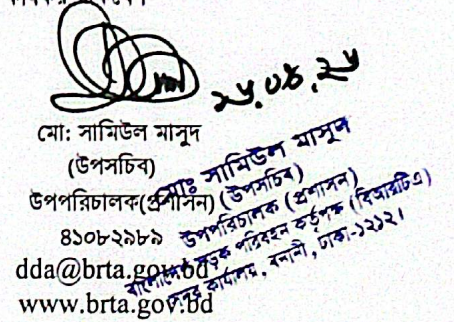 ২৮.০৪.২৫
মো: সামিউল মাসুদ
(উপসচিব)
উপপরিচালক(প্রশাসন)
৪১০৮২৯৮৯
dda@brta.gov.bd
www.brta.gov.bd
মোঃ সামিউল মাসুদ
(উপসচিব)
উপপরিচালক (প্রশাসন)
বাংলাদেশ সড়ক পরিবহন কর্তৃপক্ষ (বিআরটিএ)
সদর কার্যালয়, বনানী, ঢাকা-১২১২।